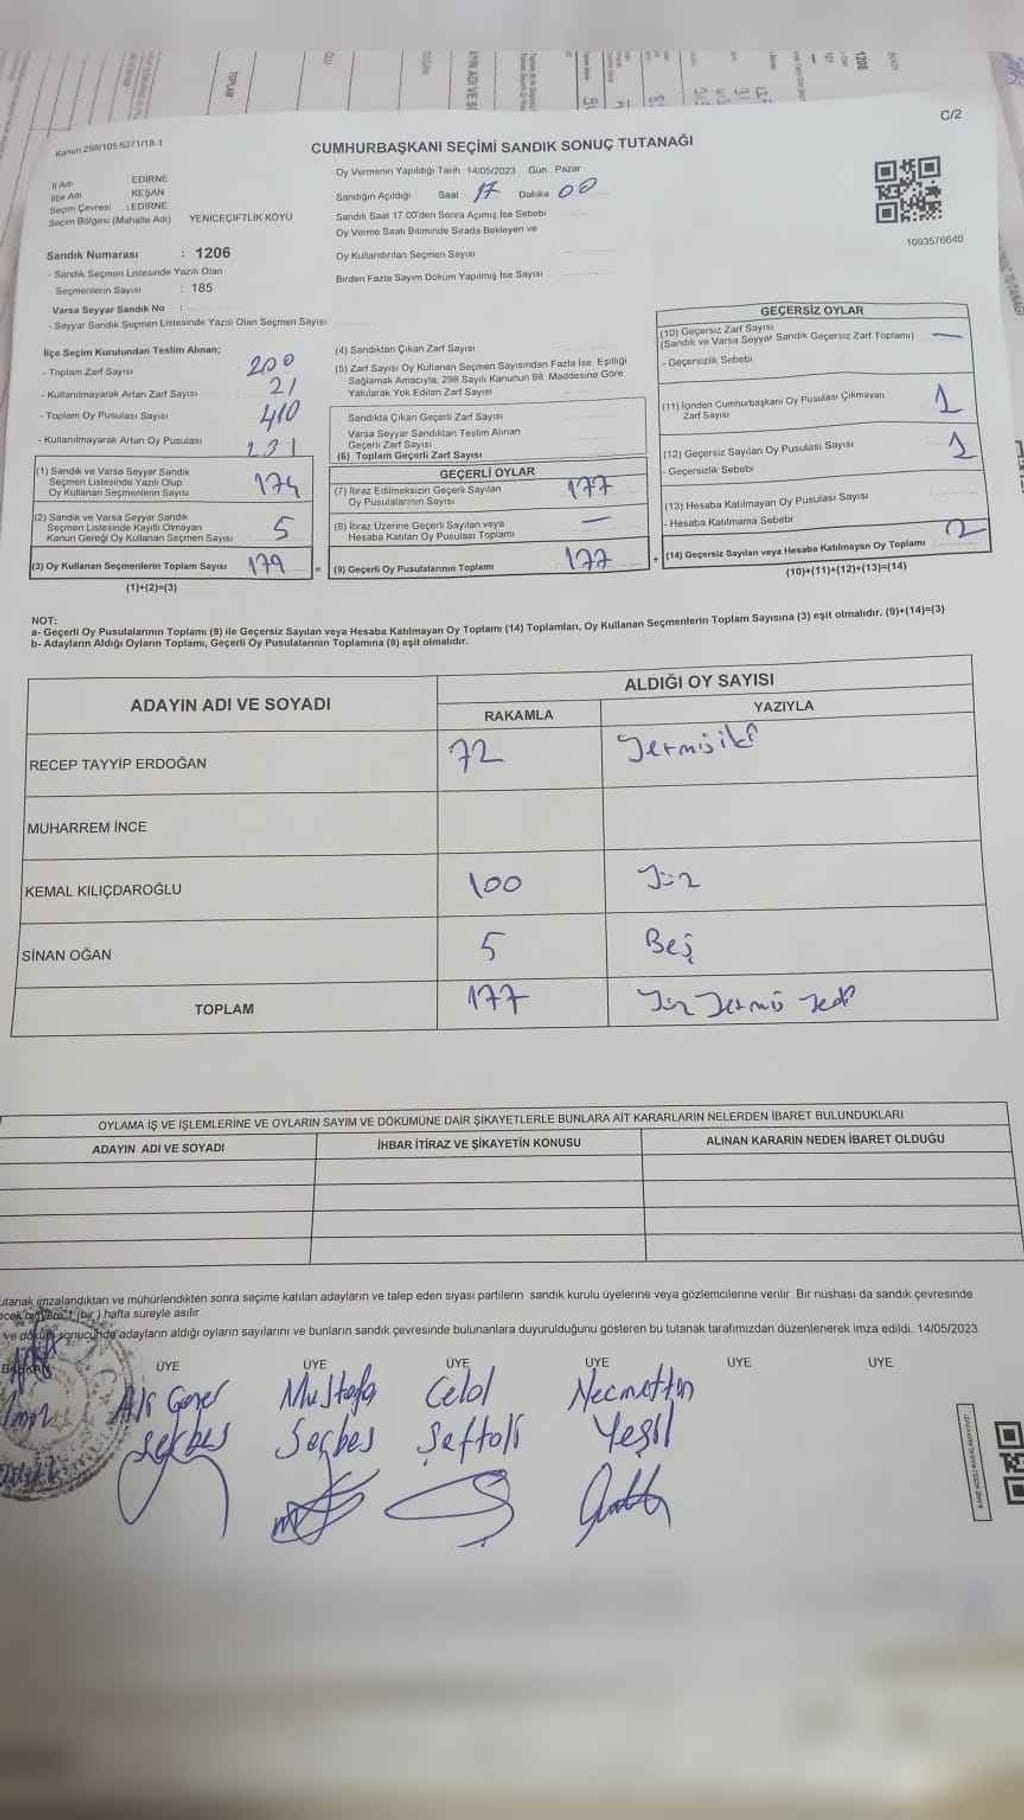 C/2
Kanun 298/105 6271/18-1
CUMHURBAŞKANI SEÇİMİ SANDIK SONUÇ TUTANAĞI
İl Adı EDİRNE
İlçe Adı KEŞAN
Seçim Çevresi :EDİRNE
Seçim Bölgesi (Mahalle Adı) YENİCEÇİFTLİK KÖYÜ
Sandık Numarası : 1206
- Sandık Seçmen Listesinde Yazılı Olan
Seçmenlerin Sayısı : 185
Varsa Seyyar Sandık No :
- Seyyar Sandık Seçmen Listesinde Yazılı Olan Seçmen Sayısı
Oy Vermenin Yapıldığı Tarih 14/05/2023 Gün Pazar
Sandığın Açıldığı Saat 17 Dakika 00
Sandık Saat 17 00'den Sonra Açılmış İse Sebebi
Oy Verme Saati Bitiminde Sırada Bekleyen ve
Oy Kullandırılan Seçmen Sayısı
Birden Fazla Sayım Döküm Yapılmış İse Sayısı
1093576640
İlçe Seçim Kurulundan Teslim Alınan;
- Toplam Zarf Sayısı 200
- Kullanılmayarak Artan Zarf Sayısı 21
- Toplam Oy Pusulası Sayısı 410
- Kullanılmayarak Artan Oy Pusulası 231
(1) Sandık ve Varsa Seyyar Sandık
Seçmen Listesinde Yazılı Olup
Oy Kullanan Seçmenlerin Sayısı 174
(2) Sandık ve Varsa Seyyar Sandık
Seçmen Listesinde Kayıtlı Olmayan
Kanun Gereği Oy Kullanan Seçmen Sayısı 5
(3) Oy Kullanan Seçmenlerin Toplam Sayısı 179
(1)+(2)=(3)
(4) Sandıktan Çıkan Zarf Sayısı
(5) Zarf Sayısı Oy Kullanan Seçmen Sayısından Fazla İse, Eşitliği
Sağlamak Amacıyla, 298 Sayılı Kanunun 98. Maddesine Göre
Yakılarak Yok Edilen Zarf Sayısı
Sandıkta Çıkan Geçerli Zarf Sayısı
Varsa Seyyar Sandıktan Teslim Alınan
Geçerli Zarf Sayısı
(6) Toplam Geçerli Zarf Sayısı
GEÇERLİ OYLAR
(7) İtiraz Edilmeksizin Geçerli Sayılan
Oy Pusulalarının Sayısı 177
(8) İtiraz Üzerine Geçerli Sayılan veya
Hesaba Katılan Oy Pusulası Toplamı —
= (9) Geçerli Oy Pusulalarının Toplamı 177
GEÇERSİZ OYLAR
(10) Geçersiz Zarf Sayısı
(Sandık ve Varsa Seyyar Sandık Geçersiz Zarf Toplamı) —
- Geçersizlik Sebebi
(11) İçinden Cumhurbaşkanı Oy Pusulası Çıkmayan
Zarf Sayısı 1
(12) Geçersiz Sayılan Oy Pusulası Sayısı 1
- Geçersizlik Sebebi
(13) Hesaba Katılmayan Oy Pusulası Sayısı
- Hesaba Katılmama Sebebi
+ (14) Geçersiz Sayılan veya Hesaba Katılmayan Oy Toplamı 2
(10)+(11)+(12)+(13)=(14)
NOT:
a- Geçerli Oy Pusulalarının Toplamı (9) ile Geçersiz Sayılan veya Hesaba Katılmayan Oy Toplamı (14) Toplamları, Oy Kullanan Seçmenlerin Toplam Sayısına (3) eşit olmalıdır. (9)+(14)=(3)
b- Adayların Aldığı Oyların Toplamı, Geçerli Oy Pusulalarının Toplamına (9) eşit olmalıdır.
ADAYIN ADI VE SOYADI ALDIĞI OY SAYISI
RAKAMLA YAZIYLA
RECEP TAYYİP ERDOĞAN 72 Yetmişiki
MUHARREM İNCE
KEMAL KILIÇDAROĞLU 100 Yüz
SİNAN OĞAN 5 Beş
TOPLAM 177 Yüz Yetmiş Yedi
OYLAMA İŞ VE İŞLEMLERİNE VE OYLARIN SAYIM VE DÖKÜMÜNE DAİR ŞİKAYETLERLE BUNLARA AİT KARARLARIN NELERDEN İBARET BULUNDUKLARI
ADAYIN ADI VE SOYADI İHBAR İTİRAZ VE ŞİKAYETİN KONUSU ALINAN KARARIN NEDEN İBARET OLDUĞU
utanak imzalandıktan ve mühürlendikten sonra seçime katılan adayların ve talep eden siyasi partilerin sandık kurulu üyelerine veya gözlemcilerine verilir. Bir nüshası da sandık çevresinde
(bir) hafta süreyle asılır
ve döküm sonucunda adayların aldığı oyların sayılarını ve bunların sandık çevresinde bulunanlara duyurulduğunu gösteren bu tutanak tarafımızdan düzenlenerek imza edildi. 14/05/2023
ÜYE ÜYE ÜYE ÜYE ÜYE ÜYE
Mustafa Celal Necmettin
Seçbes Seçbes Şeftali Yeşil